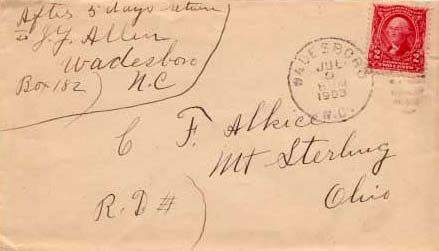 After 5 days return
to J. F. Allen
Wadesboro
Box 182 N.C
WADESBORO
JUL
9
1903
N.C.
2 2
TWO CENTS
C F. Alkice
Mt Sterling
Ohio
R.D #